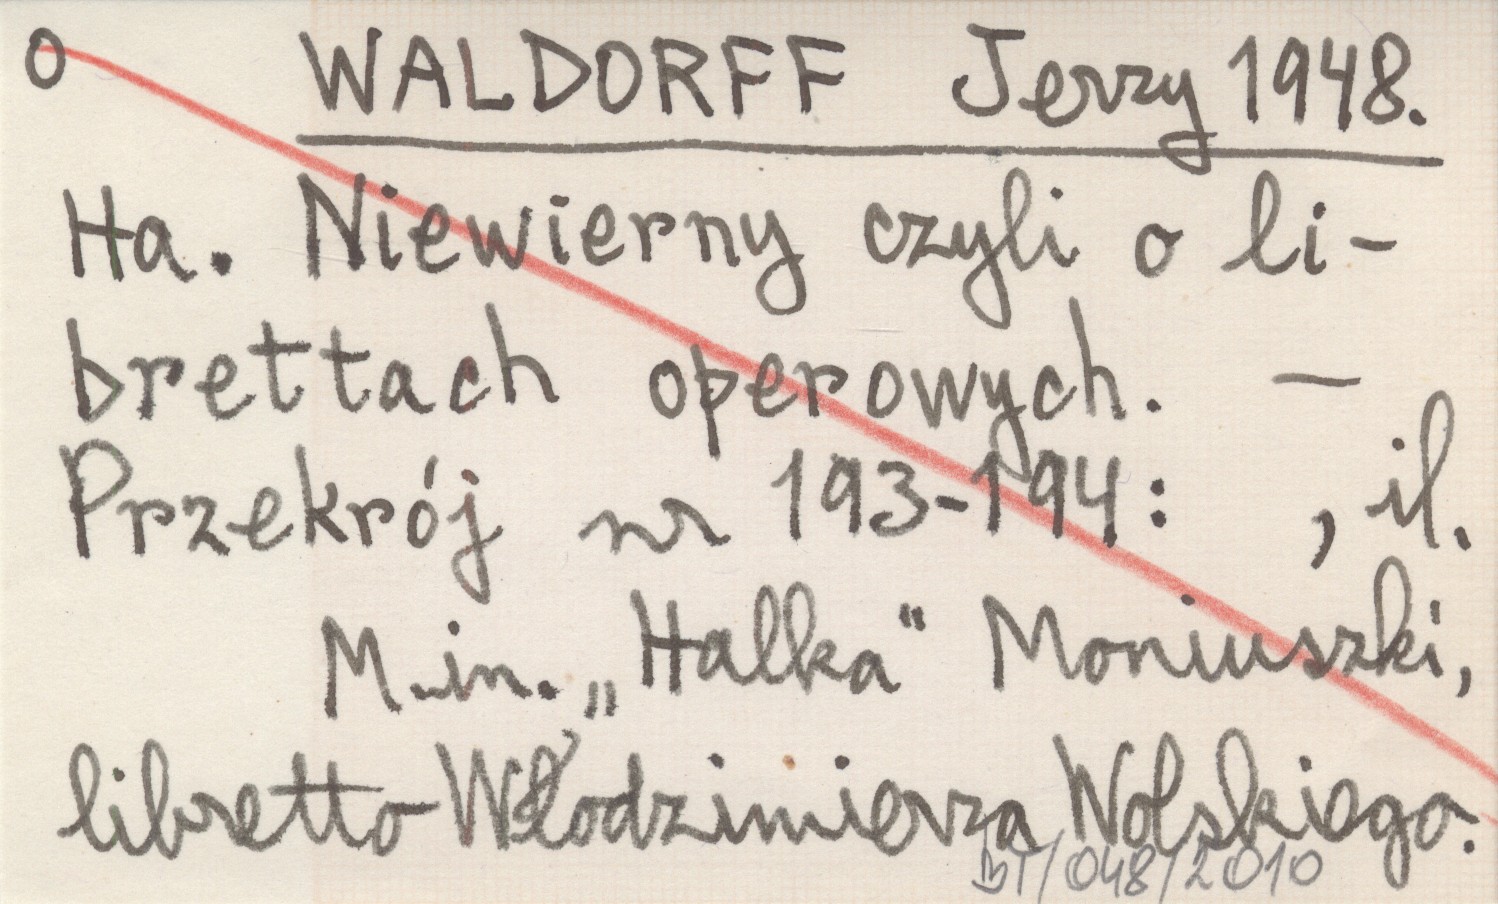 o WALDORFF Jerzy 1948.
Ha. Niewierny czyli o li-
brettach operowych. —
Przekrój nr 193-194: , il.
M.in. „Halka" Moniuszki,
libretto Włodzimierza Wolskiego.
BT/048/2010